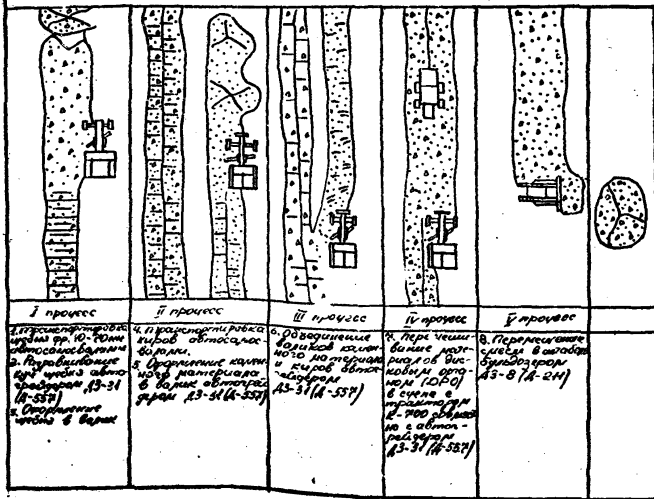 I процесс
II процесс
III процесс
IV процесс
V процесс
1. Транспортировка
щебня фр. 10-70мм
автосамосвалами
2. Разравнивание
куч щебня авто-
грейдером ДЗ-31
(Д-557)
3. Оформление
щебня в валик
4. Транспортировка
киров автосамос-
валами.
5. Оформление камен-
ного материала
в валик автогрей-
дером ДЗ-31 (Д-557)
6. Объединение
валиков камен-
ного материала
и киров авто-
грейдером
ДЗ-31 (Д-557)
7. Перемеши-
вание
в сцепе с
трактором
с автог-
рейдером
ДЗ-31 (Д-557)
8. Перемещение
смеси в штабель
бульдозером
ДЗ-8